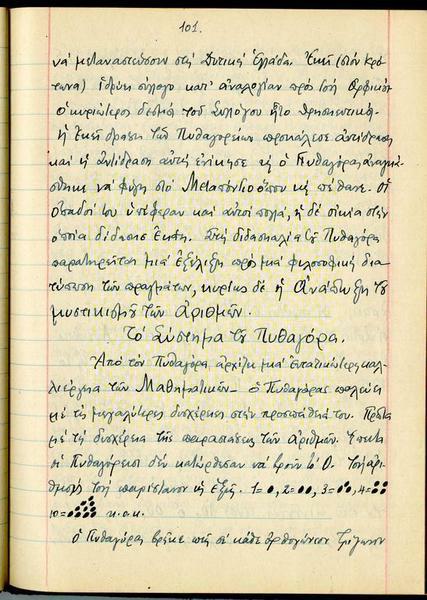 101.
νά μεταναστεύσουν στή Δυτική Ἑλλάδα. Ἐκεῖ (στόν Κρό-
τωνα) ἵδρυσε σύλλογο κατ' ἀναλογίαν πρός τούς Ὀρφικούς
ὁ κυριώτερος δεσμός τοῦ Συλλόγου ἦτο θρησκευτικός.
Ἡ ἐκεῖ δρᾶσις τῶν Πυθαγορείων προκάλεσε ἀντίδραση
καί ἡ ἀντίδραση αὐτή ἐνίκησε κι ὁ Πυθαγόρας ἀναγκά-
σθηκε νά φύγη στό Μεταπόντιο ὅπου καί πέθανε. Οἱ
ὀπαδοί του ὑπέφεραν καί αὐτοί πολλά, ἡ δέ οἰκία στήν
ὁποία δίδασκε ἐκάη. Στή διδασκαλία τοῦ Πυθαγόρα
παρατηρεῖται μιά ἐξέλιξη πρός μιά φιλοσοφική δια-
τύπωση τῶν πραγμάτων, κυρίως δέ ἡ ἀνάπτυξη τοῦ
μυστικισμοῦ τῶν ἀριθμῶν.
Τό Σύστημα τοῦ Πυθαγόρα.
Ἀπό τόν Πυθαγόρα ἀρχίζει μιά ἐντατικώτερη καλ-
λιέργεια τῶν Μαθηματικῶν – ὁ Πυθαγόρας παλεύει
μέ τίς μεγαλύτερες δυσχέρειες στήν προσπάθειά του. Πρῶτα
μέ τή δυσχέρεια τῆς παραστάσεως τῶν ἀριθμῶν. Ἔπειτα
οἱ Πυθαγόρειοι δέν κατώρθωσαν νά βροῦν τό 0. Τούς ἀρι-
θμούς τούς παρίσταναν ὡς ἑξῆς. 1=●, 2=●●, 3=●●●, 4=●●●●
10=●●●●●●●●●● κ.ο.κ.
ὁ Πυθαγόρας βρῆκε πώς σέ κάθε ὀρθογώνιον τρίγωνον